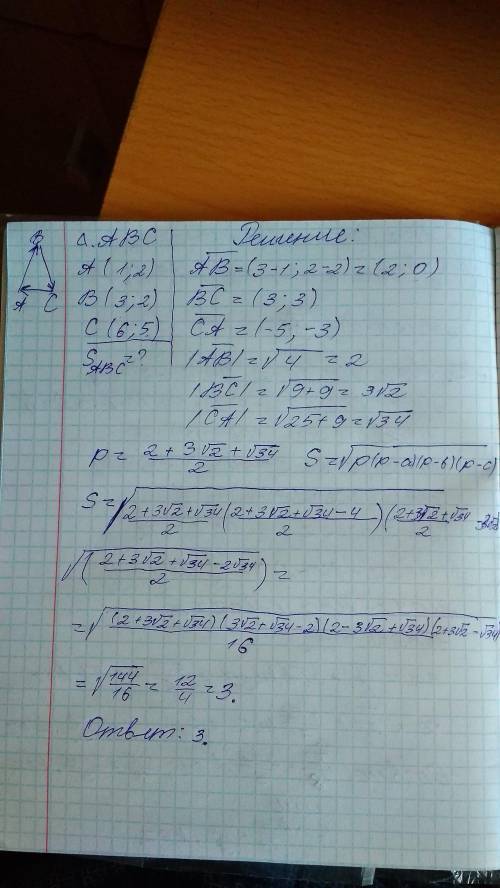 B
A C
Δ. ABC
A (1; 2)
B (3; 2)
C (6; 5)
S_ABC = ?
Решение:
AB = (3-1; 2-2) = (2; 0)
BC = (3; 3)
CA = (-5; -3)
|AB| = √4 = 2
|BC| = √(9+9) = 3√2
|CA| = √(25+9) = √34
p = (2+3√2+√34)/2 S = √(p(p-a)(p-b)(p-c)
S = √((2+3√2+√34)/2 ((2+3√2+√34-4)/2) ((2+3√2+√34)/2
√(((2+3√2+√34-2√34)/2) =
= √((2+3√2+√34)(3√2+√34-2)(2-3√2+√34)(2+3√2-√34)/16
= √(144/16) = 12/4 = 3.
Ответ: 3.